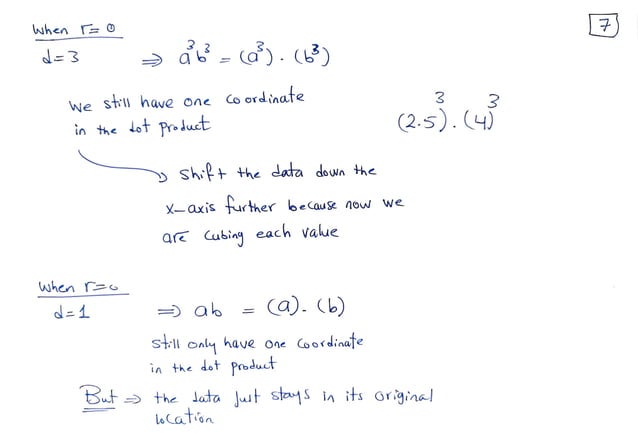 7
When r=0
d=3 ⇒ a³b³ = (a³).(b³)
We still have one coordinate
in the dot product
(2.5)³.(4)³
shift the data down the
x-axis further because now we
are cubing each value
When r=0
d=1 ⇒ ab = (a).(b)
still only have one coordinate
in the dot product
But ⇒ the data just stays in its original
location